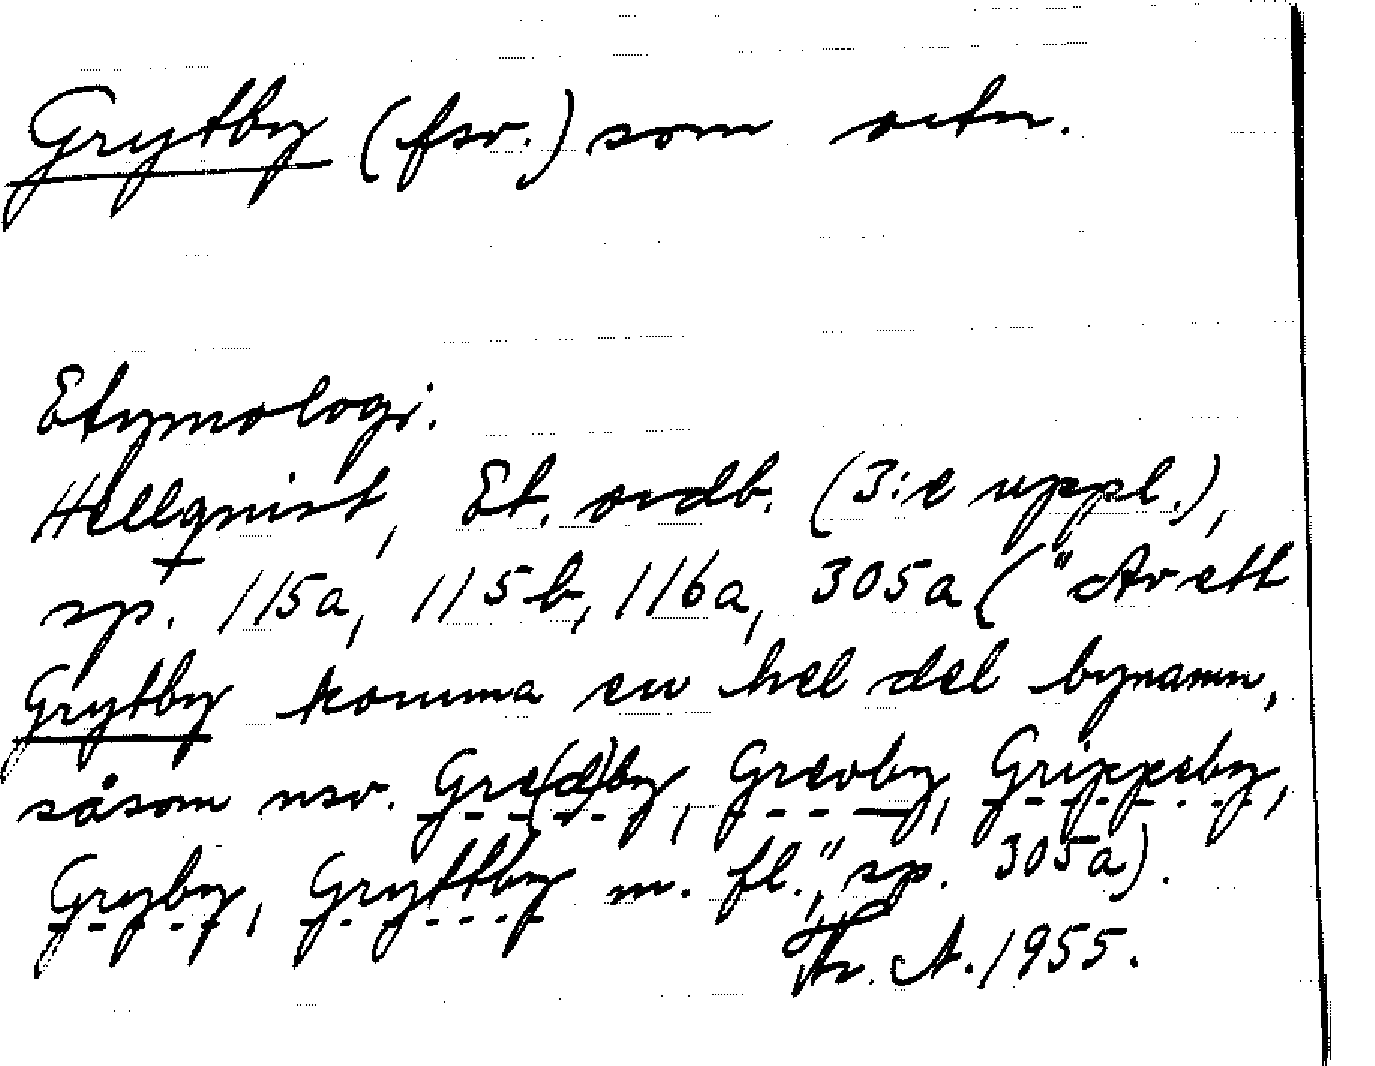 Grytby (fsv.) som ortn.
Etymologi.
Hellquist, Et. ordb. (3:e uppl.),
sp. 115a, 115b, 116a, 305a ("Av ett
Grytby komma en hel del bynamn,
såsom nsv. Gre(d)by, Grevby, Grippeby,
Gryby, Gryttby m. fl.", sp. 305a).
Fr. A. 1955.